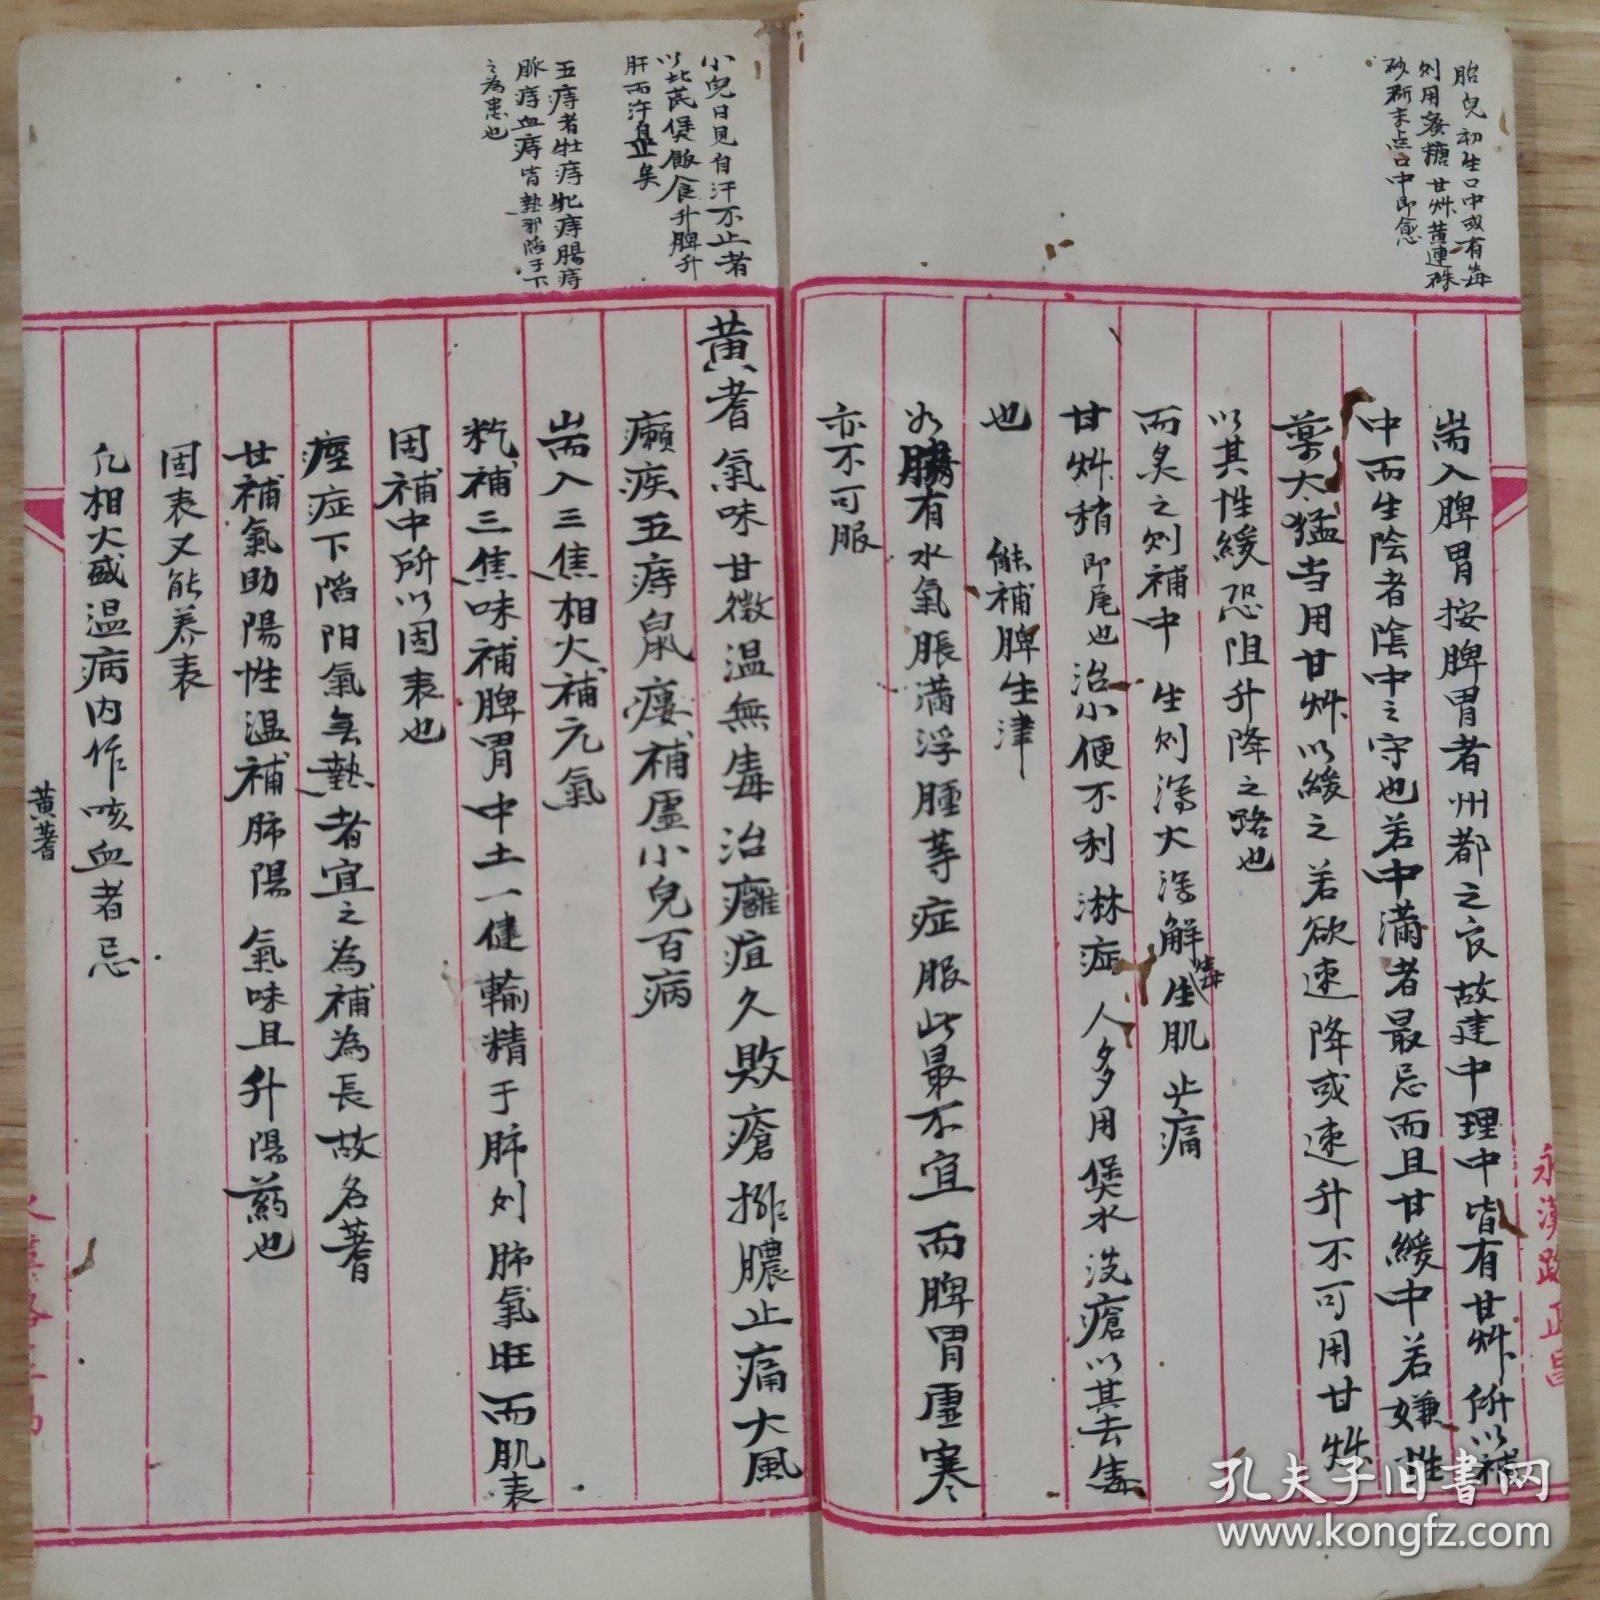 胎兒初生口中或有毒
則用蜜糖甘艸黄連硃
砂研末点口中即愈
耑入脾胃按脾胃者州都之官故建中理中皆有甘艸所以補
中而生陰者陰中之守也若中滿者最忌而且甘緩中若嫌性
藥太猛当用甘艸以緩之若欲速降或速升不可用甘艸
以其性緩恐阻升降之路也
而炙之则補中生则瀉火瀉解毒生肌止痛
甘艸稍即尾也治小便不利淋症人多用煲水洗瘡以其去毒
也 能補脾生津
必有水氣脹滿浮腫等症服此最不宜而脾胃虛寒
亦不可服
永漢路正昌
小兒日見自汗不止者
以北芪煲飯食升脾升
肝而汗自止矣
五痔者牡痔牝痔腸痔
脈痔血痔皆熱邪陷于下
之為患也
黄耆氣味甘微温無毒治癰疽久敗瘡排膿止痛大風
癩疾五痔鼠瘻補虛小兒百病
耑入三焦相火補元氣
炁補三焦味補脾胃中土一健輸精于肺则肺氣旺而肌表
固補中所以固表也
症下陷阳氣无熱者宜之為補為長故名蓍
甘補氣助陽性温補肺陽氣味且升陽葯也
固表又能养表
凡相火盛温病内作咳血者忌
黄蓍
孔夫子旧书网
www.kongfz.com